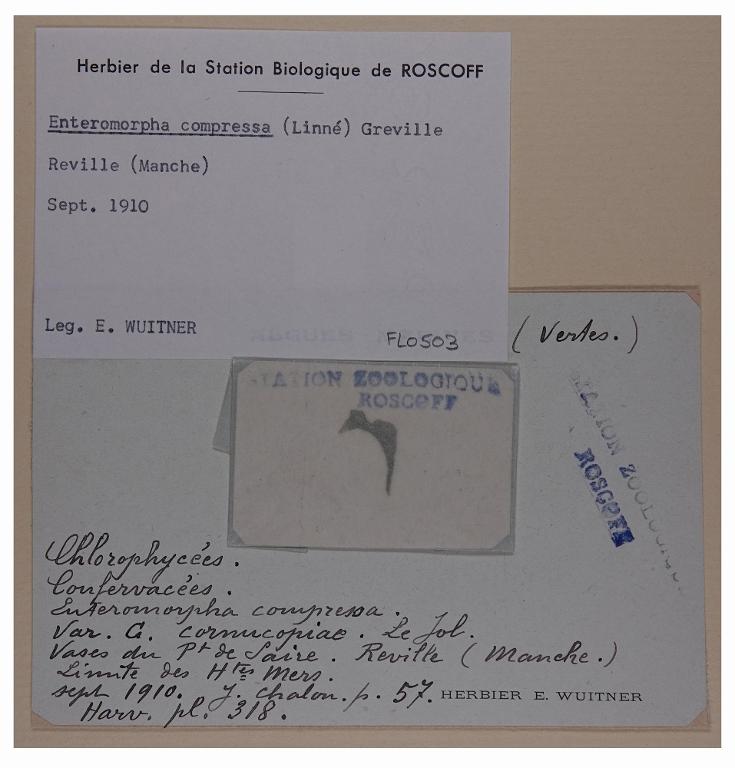 Herbier de la Station Biologique de ROSCOFF
Enteromorpha compressa (Linné) Greville
Reville (Manche)
Sept. 1910
Leg. E. WUITNER
ALGUES MARINES
FLO503
(Vertes.)
STATION ZOOLOGIQUE
ROSCOFF
STATION ZOOLOGIQUE
ROSCOFF
Chlorophycées.
Confervacées.
Enteromorpha compressa.
Var. G. cornucopiae. Le Jol.
Vases du Pt de Saire. Reville (Manche.)
Limite des Htes Mers.
sept 1910. J. Chalon. p. 57.
HERBIER E. WUITNER
Harv. pl. 318.